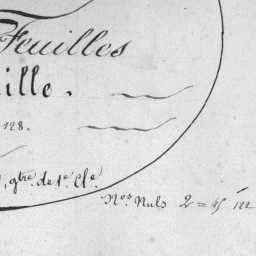 Feuilles
ille.
128.
, gbre. de 1e. Cle.
Nos Nuls 2 = 45 122